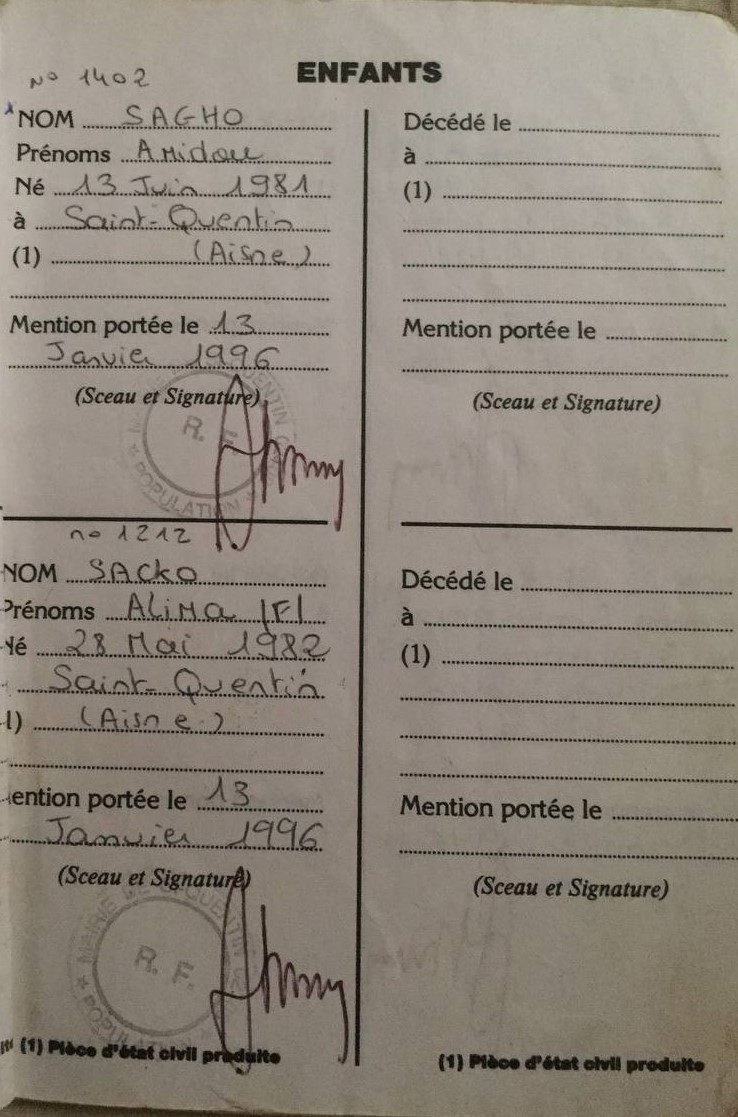 ENFANTS
No 1402
NOM SAGHO
Prénoms Amidou
Né 13 Juin 1981
à Saint-Quentin
(1) (Aisne)
Mention portée le 13
Janvier 1996
(Sceau et Signature)
QUENTIN
R. F.
POPULATION
no 1212
NOM SACKO
Prénoms ALIMA (F)
Né 28 Mai 1982
Saint-Quentin
1) (Aisne)
ention portée le 13
Janvier 1996
(Sceau et Signature)
MAIRIE QUENTIN
R. F.
(1) Pièce d'état civil produite
Décédé le
à
(1)
Mention portée le
(Sceau et Signature)
Décédé le
à
(1)
Mention portée le
(Sceau et Signature)
(1) Pièce d'état civil produite